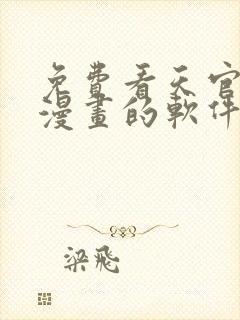 免費看天官
漫畫的軟件
梁飛